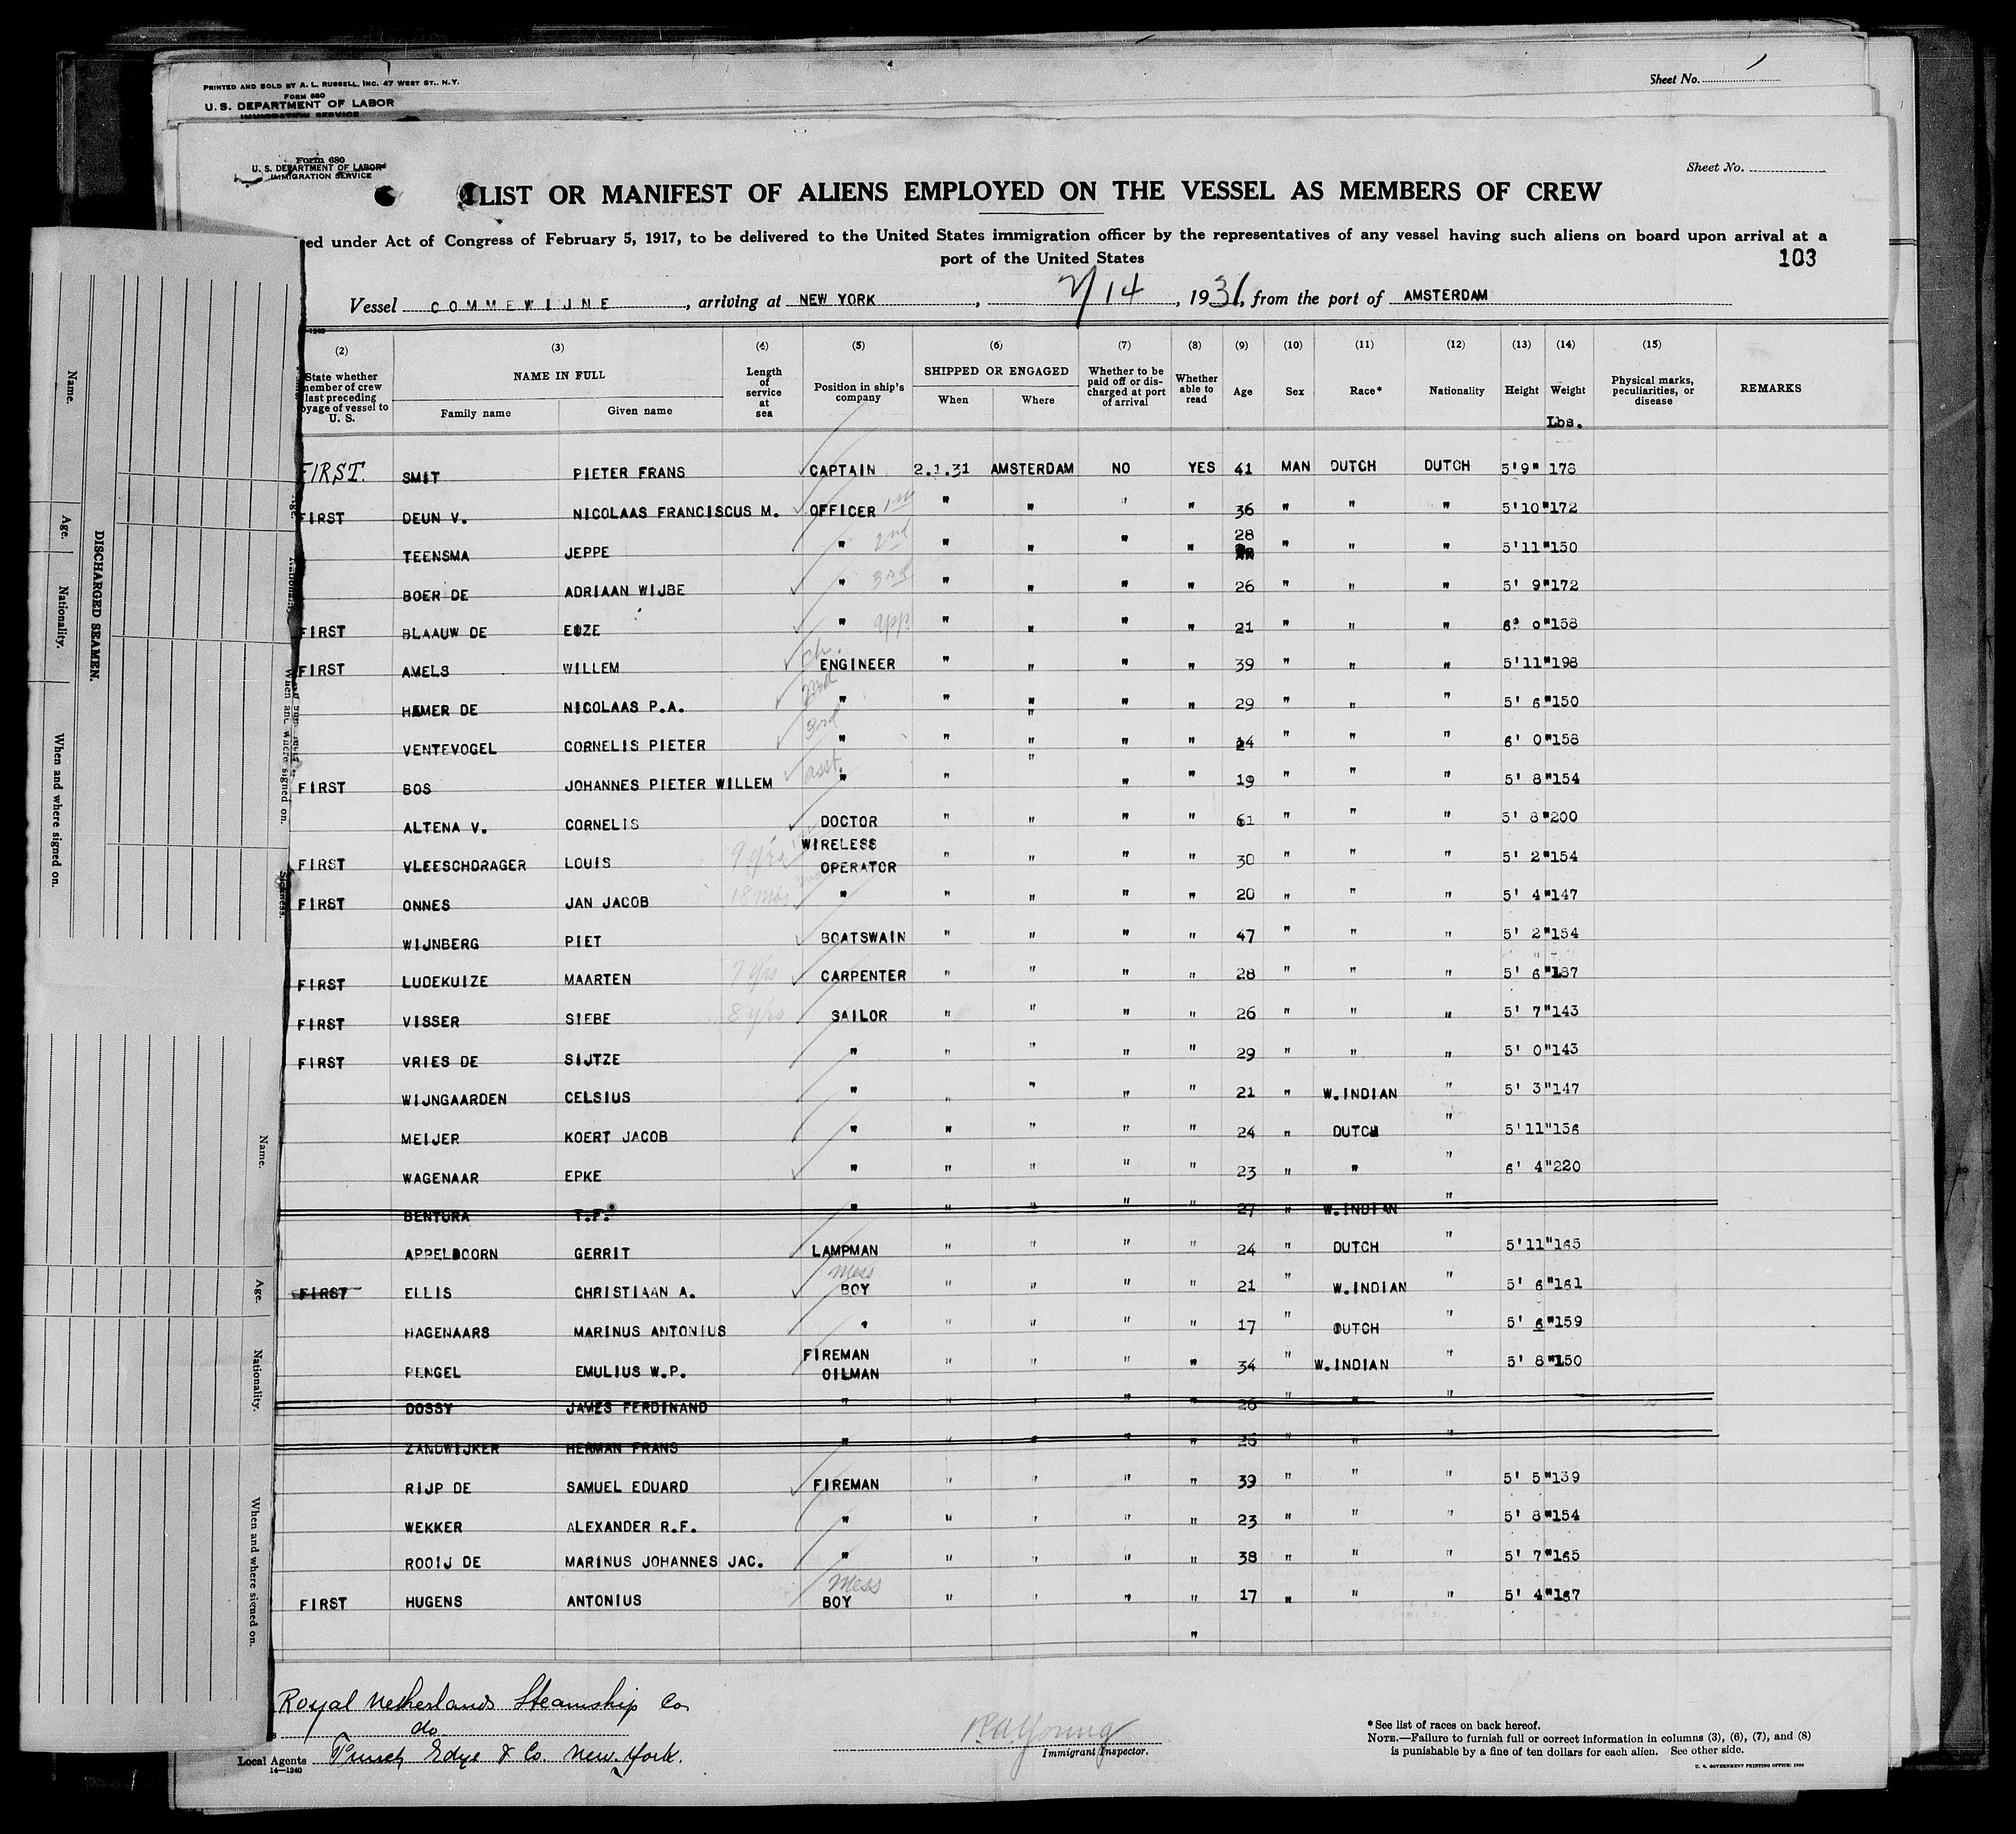 PRINTED AND SOLD BY A. L. RUSSELL, INC. 47 WEST ST., N.Y.
FORM 680
U. S. DEPARTMENT OF LABOR
IMMIGRATION SERVICE
Sheet No. 1
Form 680
U. S. DEPARTMENT OF LABOR
IMMIGRATION SERVICE
Sheet No.
LIST OR MANIFEST OF ALIENS EMPLOYED ON THE VESSEL AS MEMBERS OF CREW
ed under Act of Congress of February 5, 1917, to be delivered to the United States immigration officer by the representatives of any vessel having such aliens on board upon arrival at a
port of the United States
103
Vessel COMMEWIJNE, arriving at NEW YORK, 2/14, 1931, from the port of AMSTERDAM
(2) (3) (4) (5) (6) (7) (8) (9) (10) (11) (12) (13) (14) (15)
State whether member of crew last preceding voyage of vessel to U. S.
NAME IN FULL
Family name Given name
Length of service at sea
Position in ship's company
SHIPPED OR ENGAGED
When Where
Whether to be paid off or discharged at port of arrival
Whether able to read
Age Sex Race* Nationality Height Weight
Physical marks, peculiarities, or disease
REMARKS
Lbs.
FIRST. SMIT PIETER FRANS CAPTAIN 2.1.31 AMSTERDAM NO YES 41 MAN DUTCH DUTCH 5'9" 178
FIRST DEUN V. NICOLAAS FRANCISCUS M. OFFICER 1st " " " " 36 " " " 5'10" 172
TEENSMA JEPPE " 2nd " " " " 28 " " " 5'11" 150
BOER DE ADRIAAN WIJBE " 3rd " " " " 26 " " " 5' 9" 172
FIRST BLAAUW DE EUZE " app " " " " 21 " " " 6' 0" 158
FIRST AMELS WILLEM ch. ENGINEER " " " " 39 " " " 5'11" 198
HAMER DE NICOLAAS P.A. 2nd " " " " " 29 " " " 5' 6" 150
VENTEVOGEL CORNELIS PIETER 3rd " " " " " 24 " " " 6' 0" 158
FIRST BOS JOHANNES PIETER WILLEM asst. " " " " " 19 " " " 5' 8" 154
ALTENA V. CORNELIS DOCTOR " " " " 61 " " " 5' 8" 200
FIRST VLEESCHDRAGER LOUIS 9 yrs WIRELESS OPERATOR " " " " 30 " " " 5' 2" 154
FIRST ONNES JAN JACOB 18 mos " " " " " 20 " " " 5' 4" 147
WIJNBERG PIET BOATSWAIN " " " " 47 " " " 5' 2" 154
FIRST LUDEKUIZE MAARTEN 7 yrs CARPENTER " " " " 28 " " " 5' 6" 187
FIRST VISSER SIEBE 8 yrs SAILOR " " " " 26 " " " 5' 7" 143
FIRST VRIES DE SIJTZE " " " " " 29 " " " 5' 0" 143
WIJNGAARDEN CELSIUS " " " " " 21 " W.INDIAN " 5' 3" 147
MEIJER KOERT JACOB " " " " " 24 " DUTCH " 5'11" 156
WAGENAAR EPKE " " " " " 23 " " " 6' 4" 220
BENTURA T.F. " " " " " 27 " W.INDIAN "
APPELDOORN GERRIT LAMPMAN " " " " 24 " DUTCH " 5'11" 165
FIRST ELLIS CHRISTIAAN A. Mess BOY " " " " 21 " W.INDIAN " 5' 6" 161
HAGENAARS MARINUS ANTONIUS " " " " " 17 " DUTCH " 5' 6" 159
PENGEL EMULIUS W.P. FIREMAN OILMAN " " " " 34 " W.INDIAN " 5' 8" 150
DOSSY JAMES FERDINAND " " " " " 26 " " "
ZANDWIJKER HERMAN FRANS " " " " " 26 " " "
RIJP DE SAMUEL EDUARD FIREMAN " " " " 39 " " " 5' 5" 139
WEKKER ALEXANDER R.F. " " " " " 23 " " " 5' 8" 154
ROOIJ DE MARINUS JOHANNES JAC. " " " " " 38 " " " 5' 7" 165
FIRST HUGENS ANTONIUS Mess BOY " " " " 17 " " " 5' 4" 167
"
Royal Netherlands Steamship Co
do
Local Agents Funch Edye & Co. New York.
14-1240
Immigrant Inspector.
*See list of races on back hereof.
NOTE.—Failure to furnish full or correct information in columns (3), (6), (7), and (8)
is punishable by a fine of ten dollars for each alien. See other side.
U. S. GOVERNMENT PRINTING OFFICE: 1929
DISCHARGED SEAMEN.
Name.
Age.
Nationality.
When and where signed on.
When and where signed on.
Sickness.
Name.
Age.
Nationality.
When and where signed on.